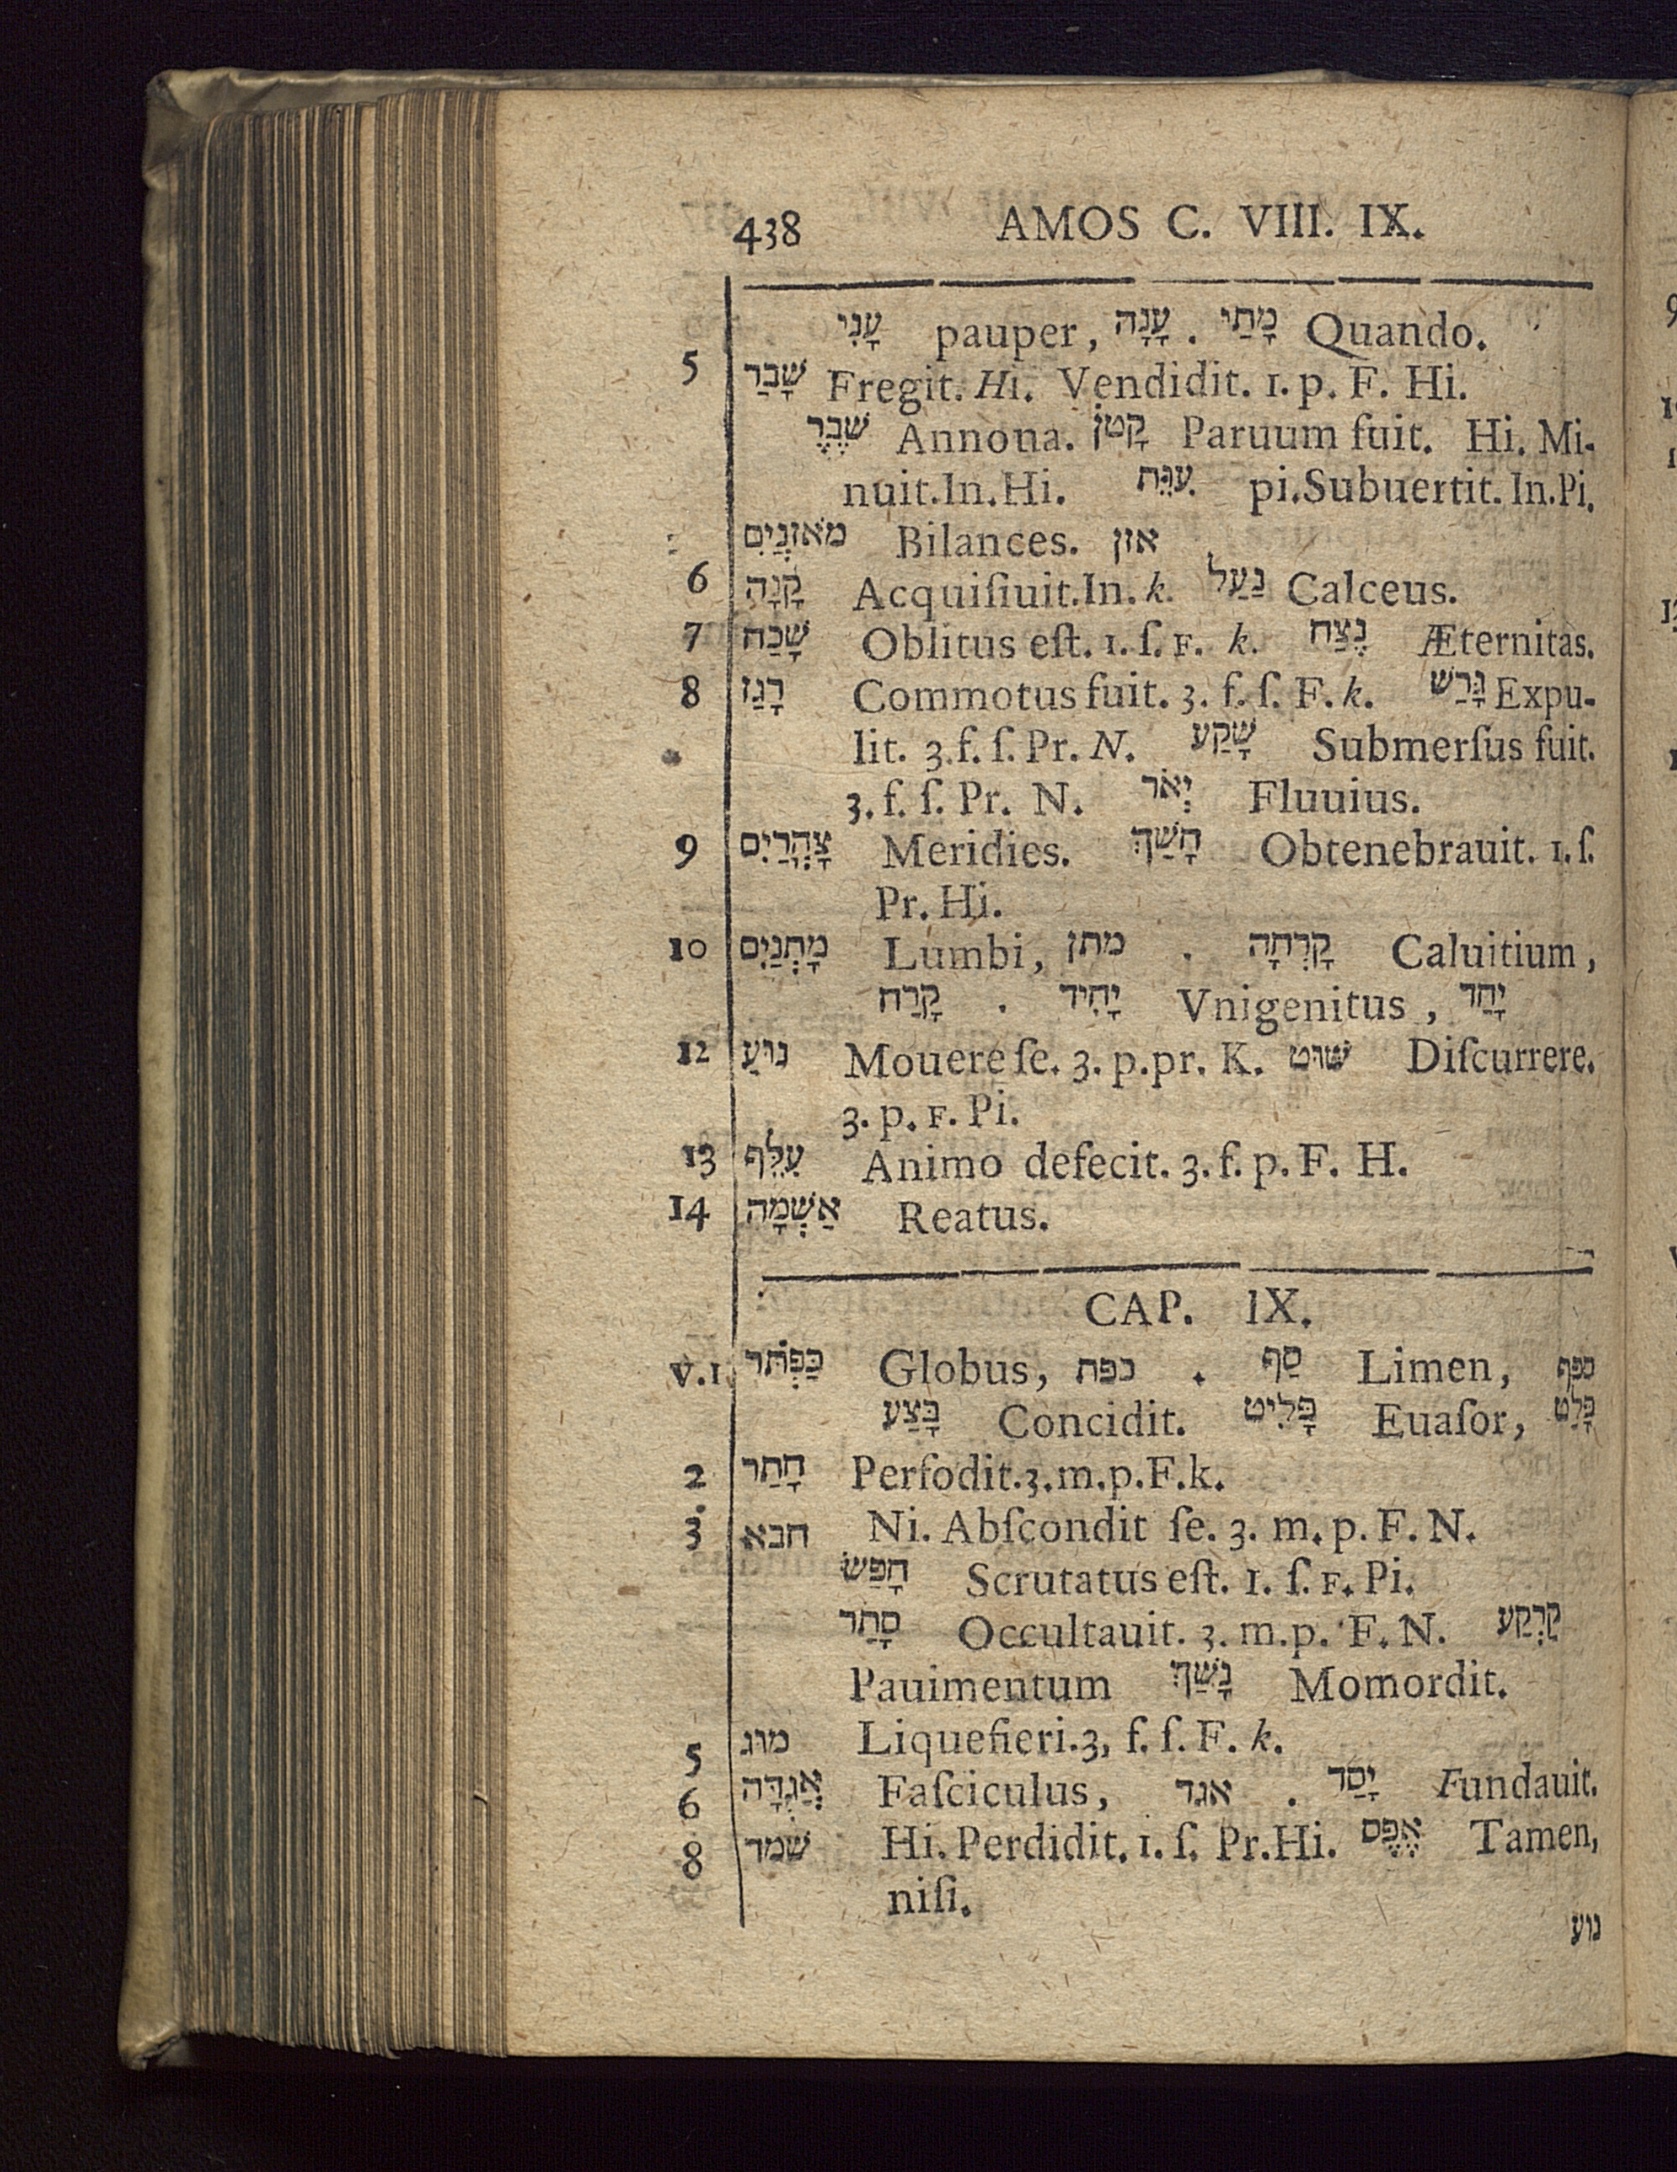 438 AMOS C. VIII. IX.
עָנִי pauper, עָנָה . מָתַי Quando.
5 שָׁבַר Fregit. Hi. Vendidit. 1. p. F. Hi.
שֶׁבֶר Annona. קָטֹן Paruum fuit. Hi. Mi-
nuit.In.Hi. עִוֵּת pi.Subuertit.In.Pi.
מֹאזְנַיִם Bilances. אזן
6 קָנָה Acquiſiuit.In. k. נַעַל Calceus.
7 שָׁכַח Oblitus eſt. 1. ſ. F. k. נֶצַח Æternitas.
8 רָגַז Commotus fuit. 3. f. ſ. F. k. גָּרַשׁ Expu-
lit. 3. f. ſ. Pr. N. שָׁקַע Submerſus fuit.
3. f. ſ. Pr. N. יְאֹר Fluuius.
9 צָהֳרַיִם Meridies. חָשַׁךְ Obtenebrauit. 1. ſ.
Pr. Hi.
10 מָתְנַיִם Lumbi, מתן . קָרְחָה Caluitium,
קָרַח . יָחִיד Vnigenitus , יָחַד
12 נוּעַ Mouere ſe. 3. p. pr. K. שׁוּט Diſcurrere.
3. p. F. Pi.
13 עִלֵּף Animo defecit. 3. f. p. F. H.
14 אַשְׁמָה Reatus.
CAP. IX.
V.1 כַּפְתֹּר Globus, כפת . סַף Limen, כפף
בָּצַע Concidit. פָּלִיט Euaſor, פָּלַט
2 חָתַר Perfodit.3.m.p.F.k.
3 חבא Ni. Abſcondit ſe. 3. m. p. F. N.
חָפַשׂ Scrutatus eſt. 1. ſ. F. Pi.
סָתַר Occultauit. 3. m.p. F. N. קַרְקַע
Pauimentum נָשַׁךְ Momordit.
5 מוּג Liquefieri.3, f. ſ. F. k.
6 אֲגֻדָּה Faſciculus, אגד . יָסַד Fundauit.
8 שׁמד Hi. Perdidit. 1. ſ. Pr.Hi. אֶפֶס Tamen,
niſi.
נוע